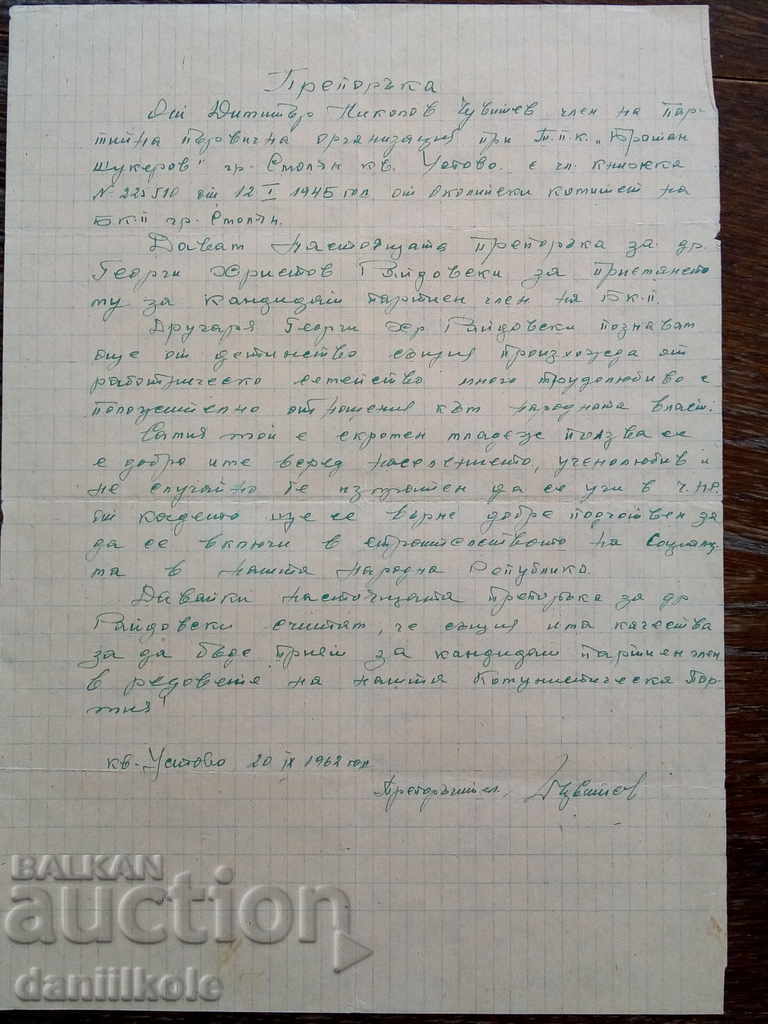 Препоръка
От Димитър Николов Цвятев член на Пар-
тийна първична организация при Т.П.К. "Братан
Шукеров" гр. Смолян кв. Устово. с чл. книжка
№ 225510 от 12 I 1945 год. от Околийски комитет на
БКП гр. Смолян.
Давам настоящата препоръка за др.
Георги Христов Райдовски за приемането
му за кандидат партиен член на БКП.
Другаря Георги Хр Райдовски познавам
още от детинство същия произхожда от
работническо семейство много трудолюбиво с
положително отношения към народната власт.
Самия той е скромен младеж ползва се
с добро име всред населението, ученолюбив и
не случайно бе изпратен да се учи в
от където ще се върне добре подготвен за
да се включи в строителството на Социализ-
ма в нашта народна Република.
Давайки настоящата препоръка за др
Райдовски считам, че същия има качества
за да бъде приет за кандидат партиен член
в редовете на нашта Комунистическа Пар-
тия!
кв. Устово 20 IX 1962 год.
Препоръчител:
BALKAN
auction
daniilkole